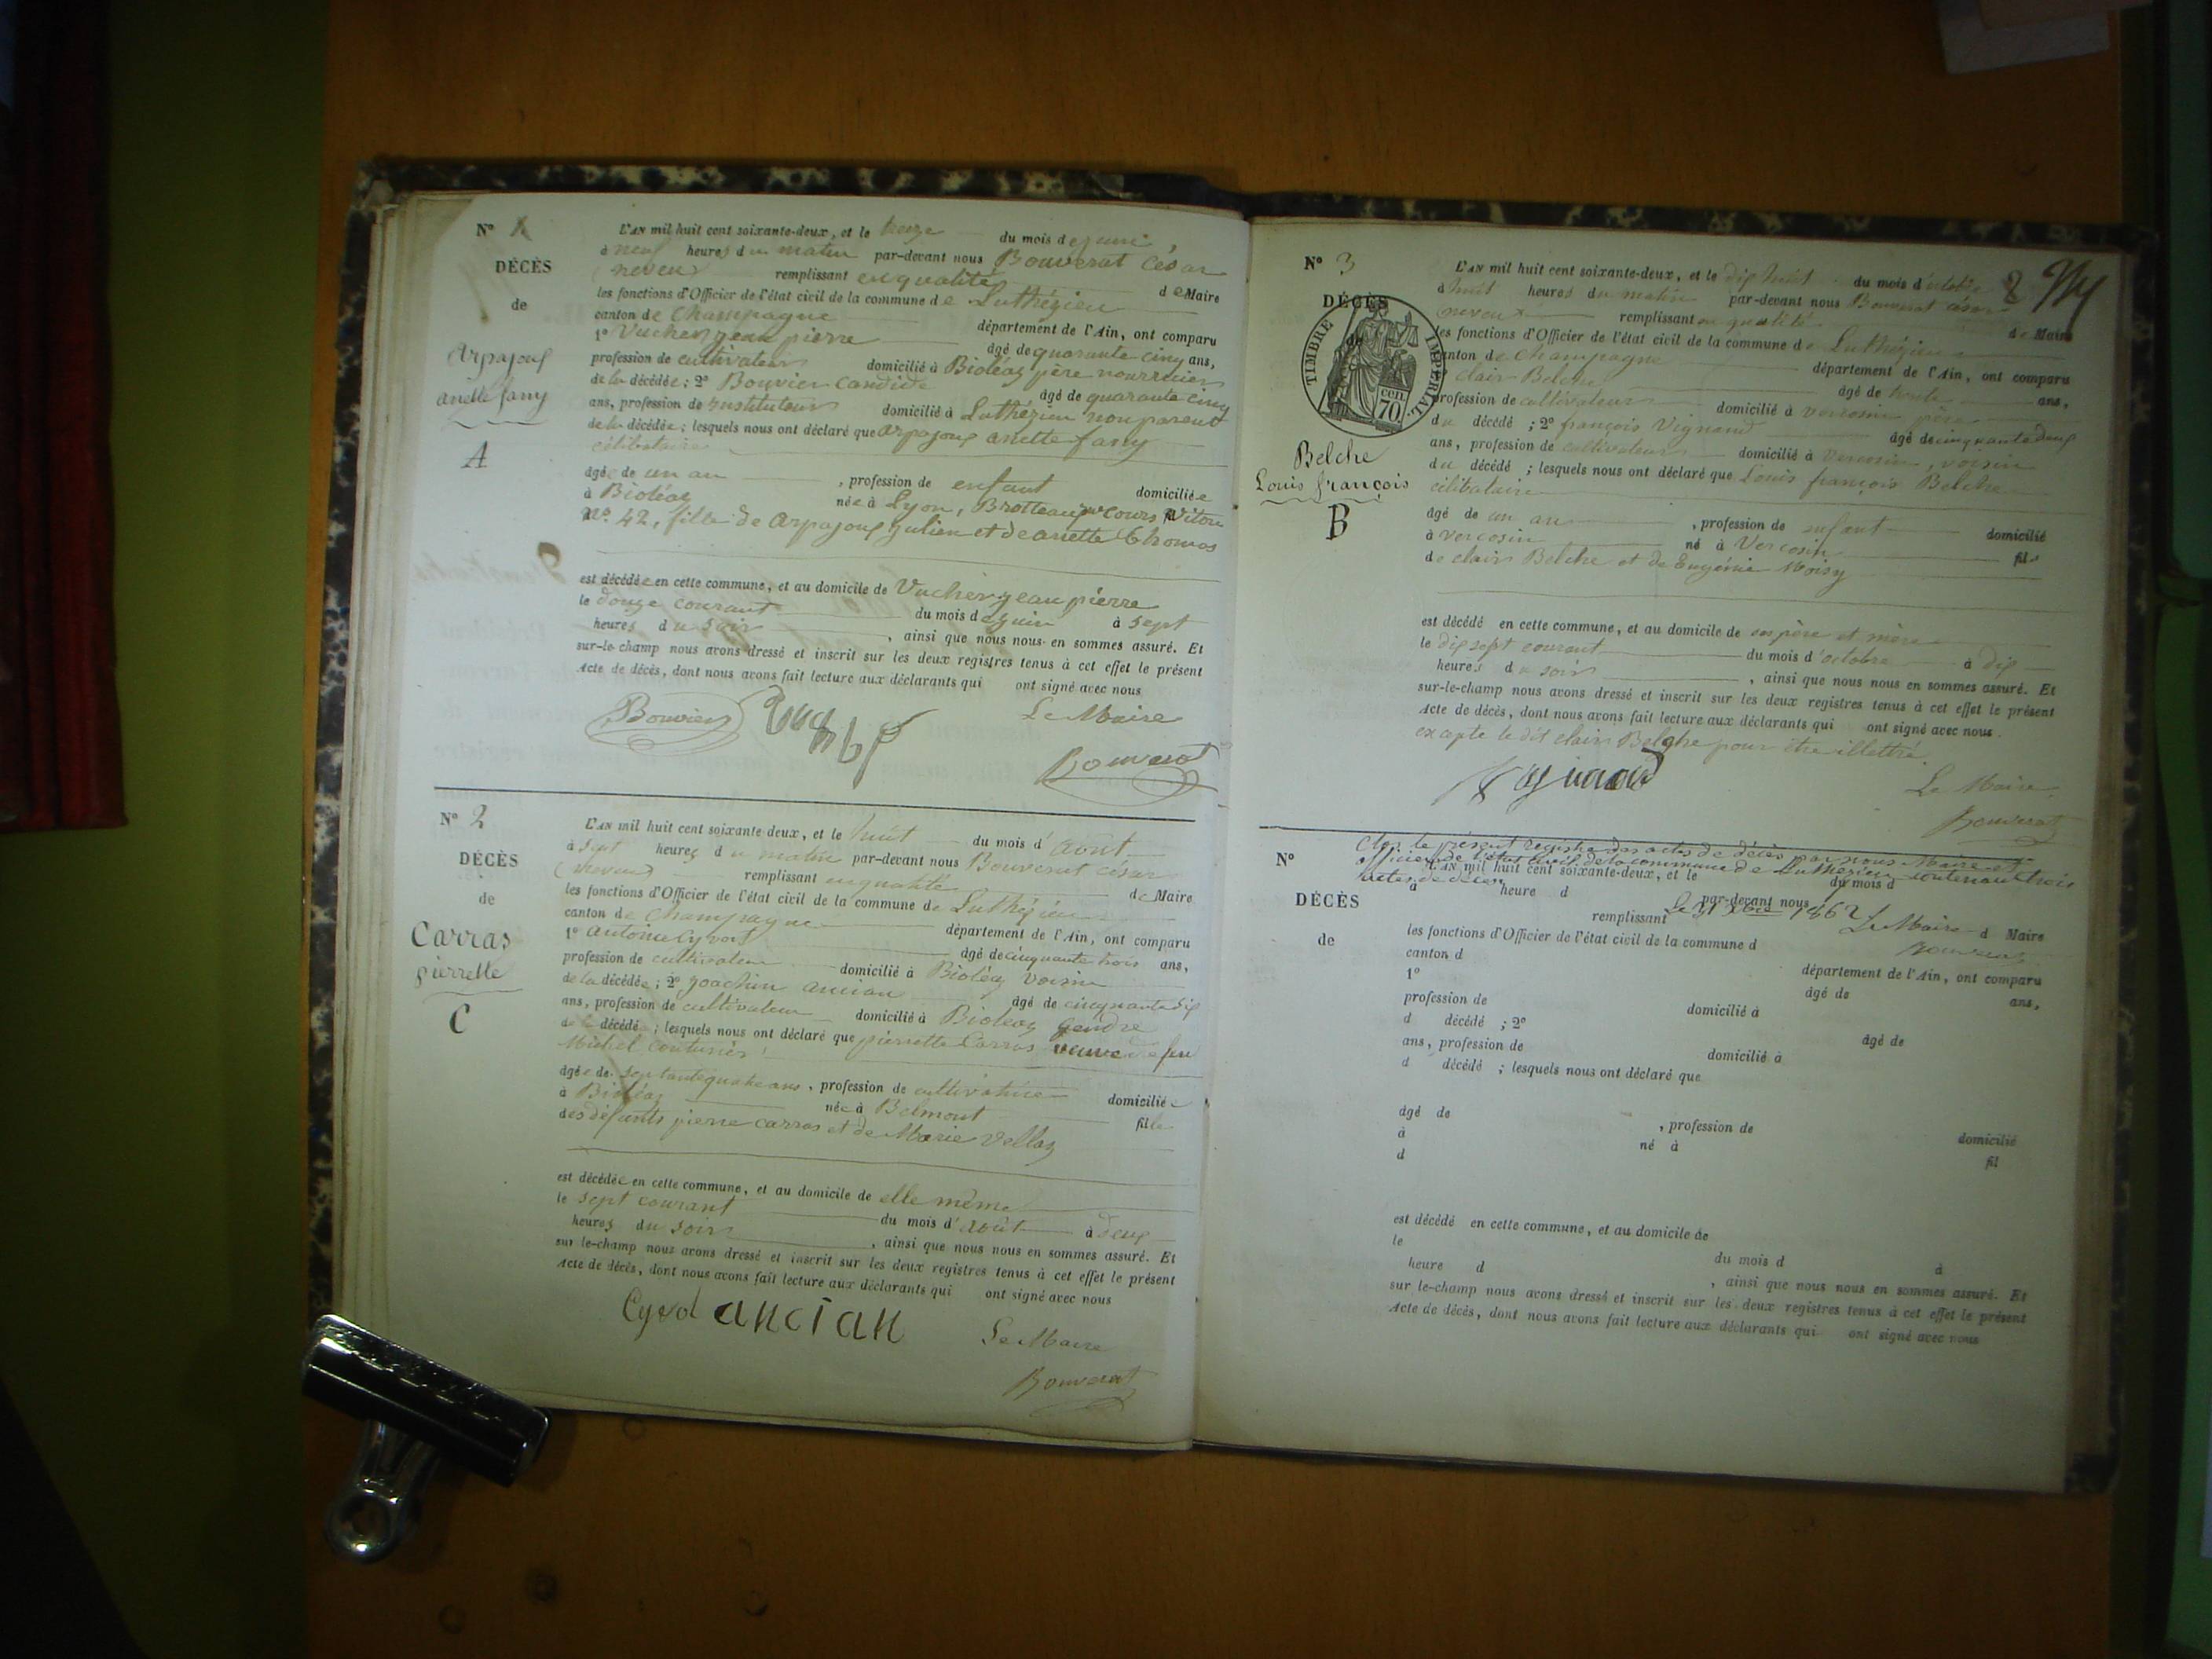 N° 1
DÉCÈS
de
Arpajoux
anette fany
A
L'AN mil huit cent soixante-deux, et le treize du mois de juin,
à neuf heures du matin par-devant nous Bouverat César
(neveu) remplissant en qualité de Maire
les fonctions d'Officier de l'état civil de la commune de Luthézieu
canton de Champagne département de l'Ain, ont comparu
1° Vuchey jean pierre âgé de quarante cinq ans,
profession de cultivateur domicilié à Bioléaz père nourricier
de la décédée; 2° Bouvier Candide âgé de quarante cinq
ans, profession de instituteur domicilié à Luthézieu non parent
de la décédée; lesquels nous ont déclaré que arpajoux anette fany
célibataire
âgée de un an, profession de enfant domiciliée
à Bioléaz née à Lyon, Brotteaux cours Vitton
n° 42, fille de arpajoux julien et de anette thomas
est décédée en cette commune, et au domicile de Vuchey jean pierre
le douze courant du mois de juin à sept
heures du soir, ainsi que nous nous en sommes assuré. Et
sur-le-champ nous avons dressé et inscrit sur les deux registres tenus à cet effet le présent
Acte de décès, dont nous avons fait lecture aux déclarants qui ont signé avec nous
Bouvier Le Maire
Bouverat
N° 2
DÉCÈS
de
Carras
pierrette
C
L'AN mil huit cent soixante-deux, et le huit du mois d'août
à sept heures du matin par-devant nous Bouverat césar
(neveu) remplissant en qualité de Maire
les fonctions d'Officier de l'état civil de la commune de Luthézieu
canton de Champagne département de l'Ain, ont comparu
1° antoine Cyvoct âgé de cinquante trois ans,
profession de cultivateur domicilié à Bioléaz voisin
de la décédée; 2° joachim ancian âgé de cinquante dix
ans, profession de cultivateur domicilié à Bioléaz gendre
de la décédée; lesquels nous ont déclaré que pierrette Carras veuve de feu
Michel couturier
âgée de septante quatre ans, profession de cultivatrice domiciliée
à Bioléaz née à Belmont fille
des défunts pierre carras et de Marie Vellaz
est décédée en cette commune, et au domicile de elle même
le sept courant du mois d'août à deux
heures du soir, ainsi que nous nous en sommes assuré. Et
sur le-champ nous avons dressé et inscrit sur les deux registres tenus à cet effet le présent
Acte de décès, dont nous avons fait lecture aux déclarants qui ont signé avec nous
ancian Le Maire
Bouverat
N° 3
DÉCÈS
TIMBRE IMPÉRIAL
70 cen
Belche
Louis françois
B
L'AN mil huit cent soixante-deux, et le dix huit du mois d'octobre
à huit heures du matin par-devant nous Bouverat césar
(neveu) remplissant en qualité de Maire
les fonctions d'Officier de l'état civil de la commune de Luthézieu
canton de Champagne département de l'Ain, ont comparu
clair Belche âgé de trente ans,
profession de cultivateur domicilié à vercosin père
du décédé; 2° françois Vignand âgé de cinquante deux
ans, profession de cultivateur domicilié à vercosin, voisin
du décédé; lesquels nous ont déclaré que Louis françois Belche
célibataire
âgé de un an, profession de enfant domicilié
à vercosin né à Vercosin fils
de clair Belche et de Eugénie Moisy
est décédé en cette commune, et au domicile de ses père et mère
le dix sept courant du mois d'octobre à dix
heures du soir, ainsi que nous nous en sommes assuré. Et
sur-le-champ nous avons dressé et inscrit sur les deux registres tenus à cet effet le présent
Acte de décès, dont nous avons fait lecture aux déclarants qui ont signé avec nous
excepte le dit clair Belche pour être illettré.
Le Maire
Bouverat
Clos le présent registre des actes de décès par nous Maire et
officier de l'état civil de la commune de Luthézieu contenant trois
actes de décès
Le 31 Xbre 1862 Le Maire
Bouverat
N°
DÉCÈS
de
L'AN mil huit cent soixante-deux, et le du mois d
à heure d par-devant nous
remplissant d Maire
les fonctions d'Officier de l'état civil de la commune d
canton d département de l'Ain, ont comparu
1° âgé de ans,
profession de domicilié à
d décédé ; 2° âgé de
ans, profession de domicilié à
d décédé ; lesquels nous ont déclaré que
âgé de , profession de domicilié
à né à fil
d
est décédé en cette commune, et au domicile de
le du mois d à
heure d , ainsi que nous nous en sommes assuré. Et
sur le-champ nous avons dressé et inscrit sur les deux registres tenus à cet effet le présent
Acte de décès, dont nous avons fait lecture aux déclarants qui ont signé avec nous